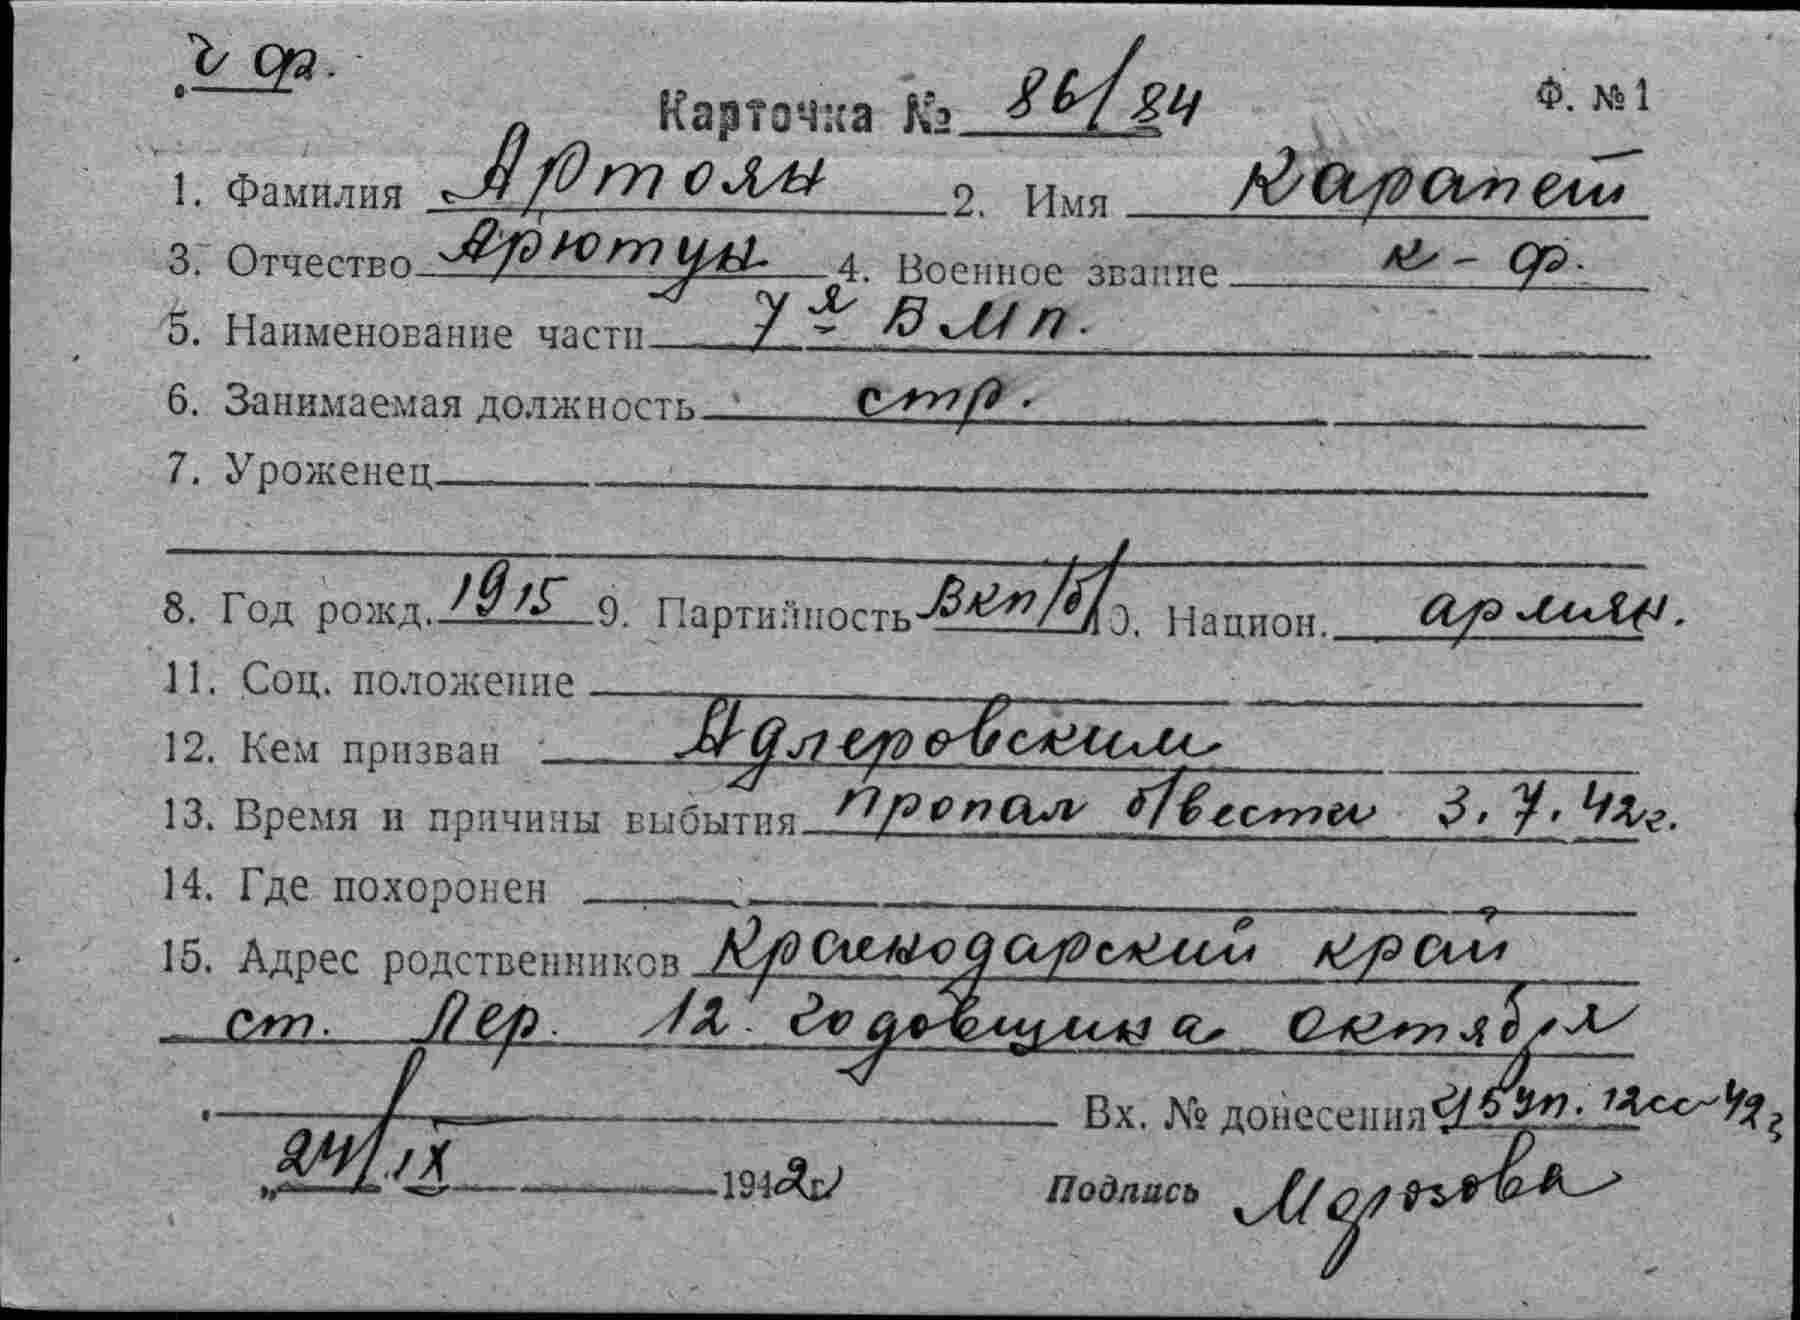 ч ф.
Карточка № 86/84
Ф. № 1
1. Фамилия Артоян 2. Имя Карапет
3. Отчество Арютун 4. Военное звание к-ф.
5. Наименование части 7я В М п.
6. Занимаемая должность стр.
7. Уроженец
8. Год рожд. 1915 9. Партийность ВКП/б/ 10. Национ. армян.
11. Соц. положение
12. Кем призван Адлеровским
13. Время и причины выбытия пропал б/вести 3.7.42г.
14. Где похоронен
15. Адрес родственников Краснодарский край
ст. Пер. 12 годовщина октября
Вх. № донесения уп. 12сс-42г
„24/IX 1942г. Подпись Морозова